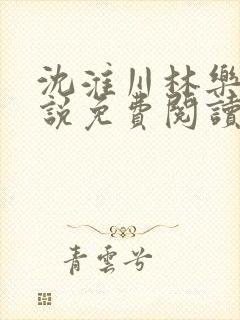 沈淮川林樂
說免費閱讀
青雲兮